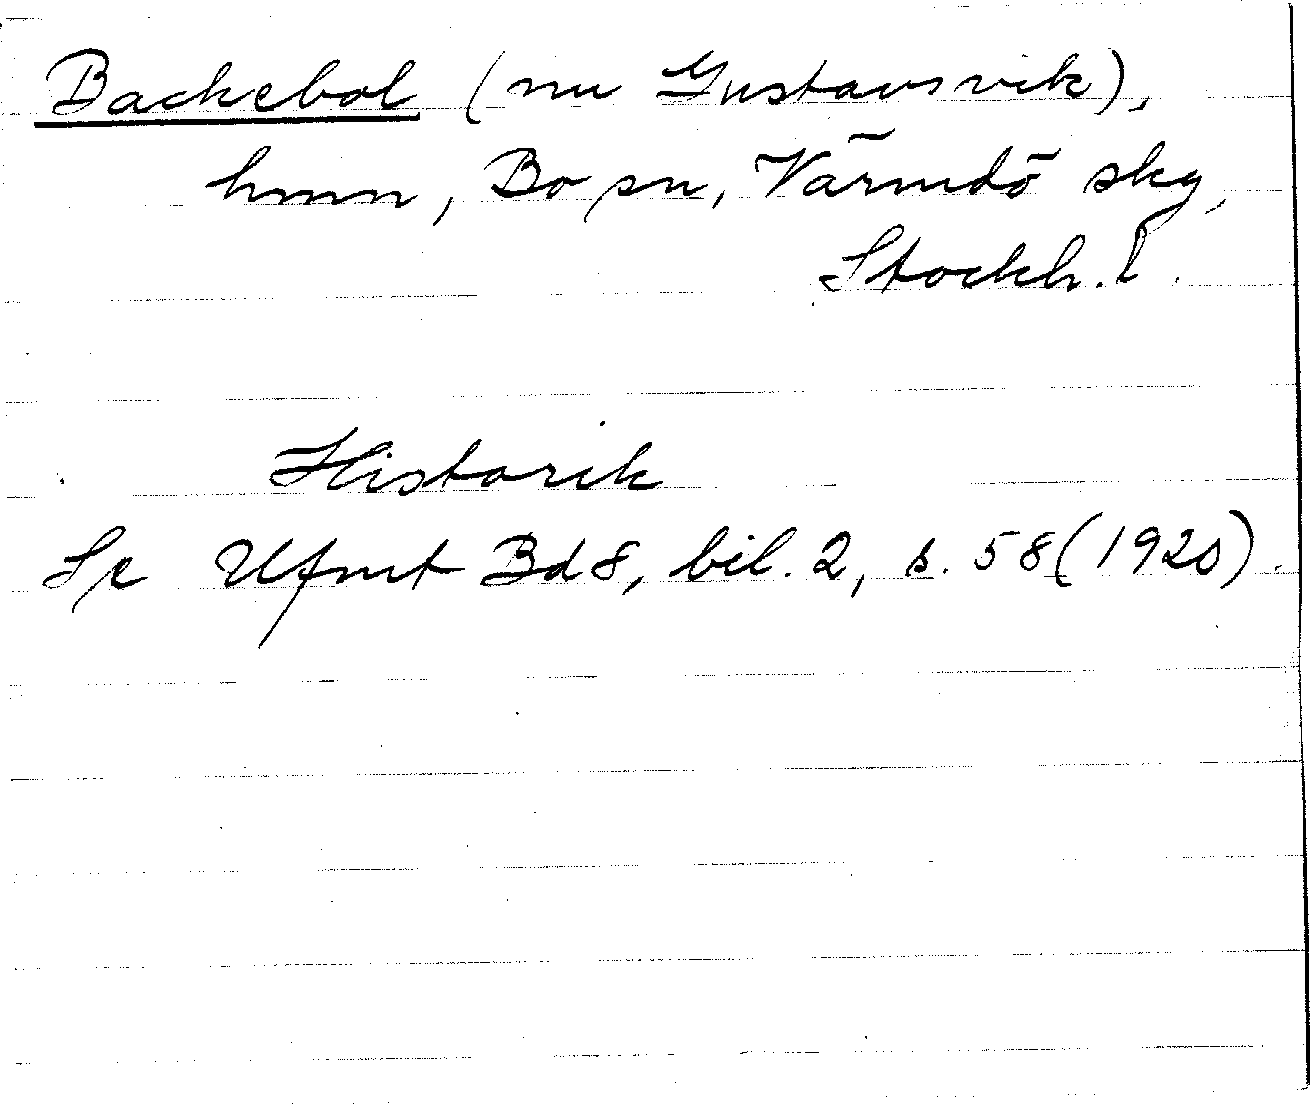 Backebol (nu Gustavsvik),
hmn, Bo sn, Värmdö skg,
Stockh. l.
Historik
Se Ufmt Bd 8, bil. 2, s. 58 (1920).